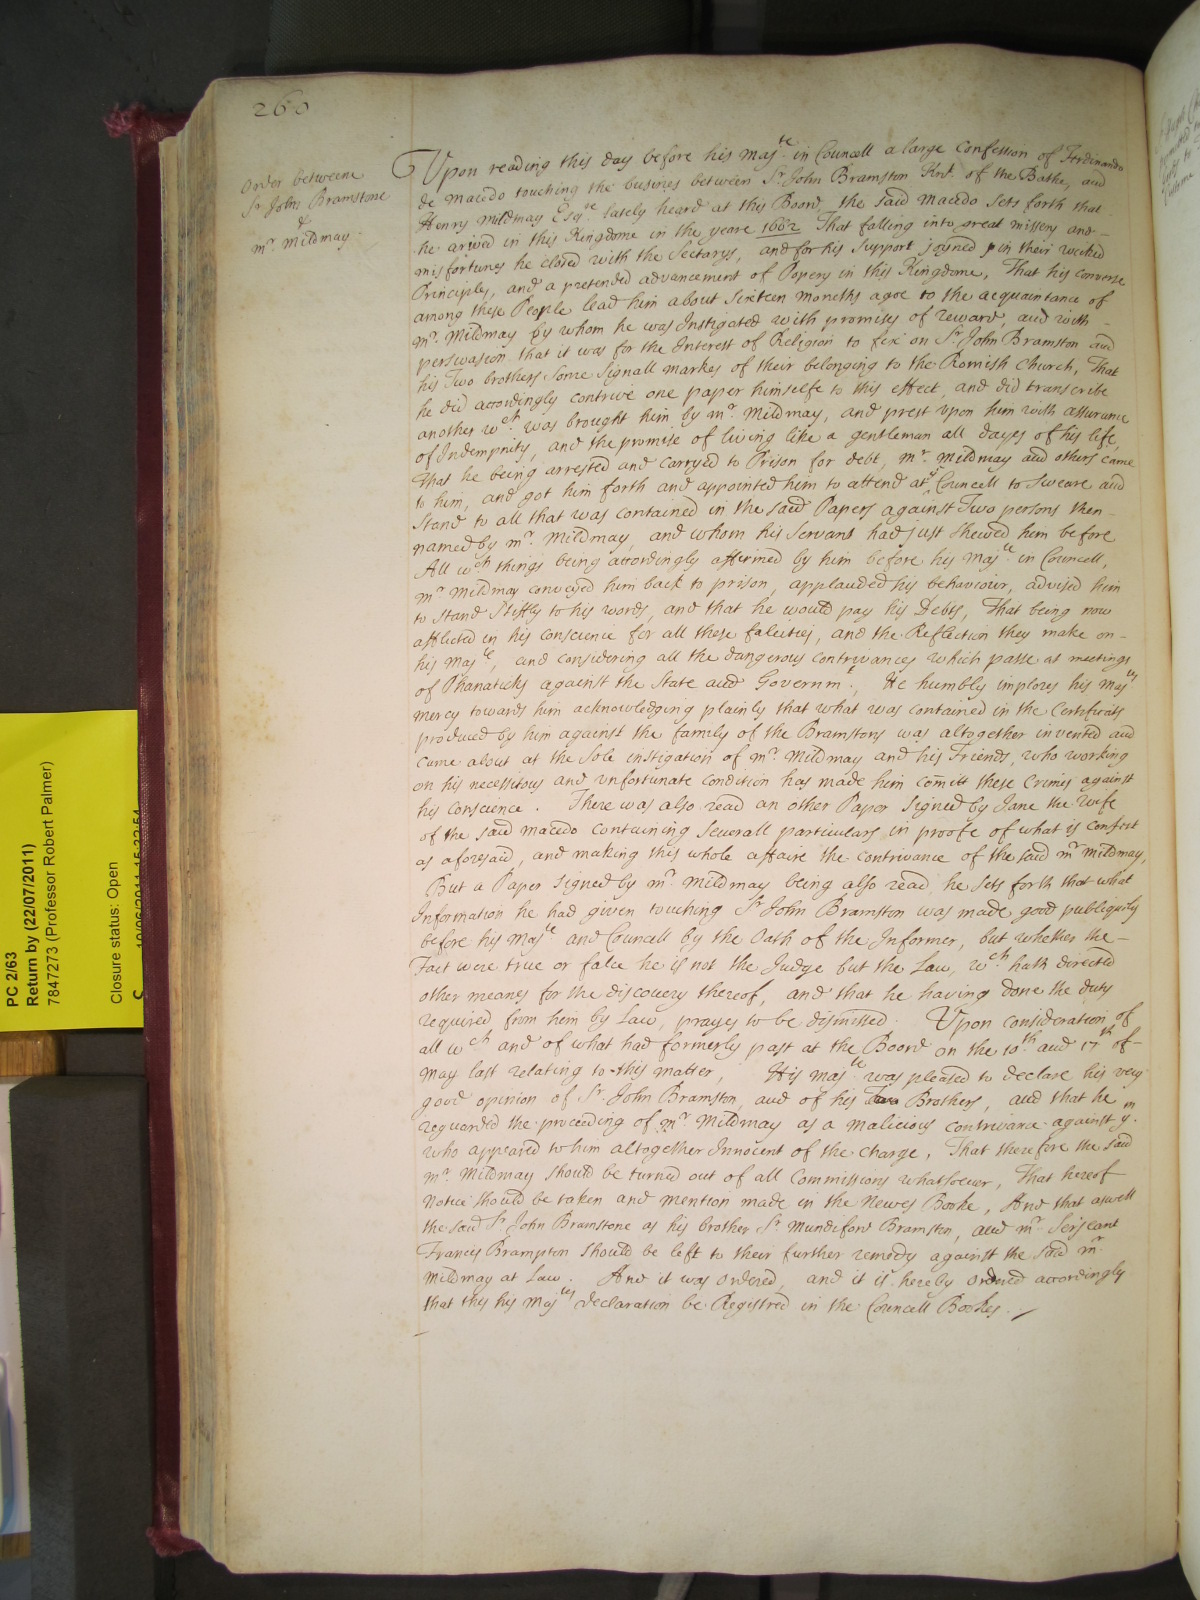 260
Order betweene
Sr. John Bramstone
&
mr. Mildmay
Upon reading this day before his Majte in Councell a large Confession of Ferdinando
de Macedo touching the busines between Sr. John Bramston Knt. of the Bathe, and
Henry Mildmay Esqre lately heard at this Board the said Macedo sets forth that
he arived in this Kingdome in the yeare 1662 That falling into great missery and
misfortunes he closed with the Sectarys, and for his Support joyned in their wicked
Principles, and a pretended advancement of Popery in this Kingdome, That his converse
among these People lead him about Sixteen months agoe to the acquaintance of
mr. Mildmay by whom he was Instigated with promises of reward, and with
perswasion that it was for the Interest of Religion to fix on Sr. John Bramston and
his Two brothers Some Signall markes of their belonging to the Romish Church, That
he did accordingly contrive one paper himselfe to this effect, and did transcribe
another wch. was brought him by mr. Mildmay, and prest upon him with assurance
of Indempnity, and the promise of living like a gentleman all dayes of his life,
That he being arrested and carryed to Prison for debt, mr. Mildmay and others came
to him, and got him forth and appointed him to attend at ye Councell to Sweare and
Stand to all that was contained in the said Papers against Two persons then
named by mr. Mildmay, and whom his Servant had just shewed him before
All wch things being accordingly affirmed by him before his Majte in Councell,
mr Mildmay conveyed him back to prison, applauded his behaviour, advised him
to Stand Stiffly to his words, and that he would pay his Debts, That being now
afflicted in his conscience for all these falcities, and the Reflection they make on
his Majte, and considering all the dangerous contrivances which passe at meetings
of Phanaticks against the State and Governmt., He humbly implores his Majtys
mercy towards him acknowledging plainly that what was contained in the Certificats
produced by him against the family of the Bramstons was altogether invented and
came about at the Sole instigation of mr. Mildmay and his Friends, who working
on his necessitous and unfortunate condition has made him com̄itt these Crimes against
his conscience. There was also read an other Paper Signed by Jane the wife
of the said macedo containing Severall particulars in proofe of what is confest
as aforesaid, and making this whole affaire the contrivance of the said mr Mildmay,
But a Paper Signed by mr. Mildmay being also read he Sets forth that what
Information he had given touching Sr. John Bramston was made good publiquely
before his Majte and Councell by the Oath of the Informer, but whether the
Fact were true or false he is not the Judge but the Law, wch. hath directed
other meanes for the discovery thereof, and that he having done the duty
required from him by Law, prayes to be dismissed. Upon consideration of
all wch and of what had formerly past at the Board on the 10th and 17th of
May last relating to this matter, His Majte was pleased to declare his very
good opinion of Sr. John Bramston, and of his Brothers, and that he
reguarded the proceeding of mr Mildmay as a malicious contrivance against ym.
who appeared to him altogether Innocent of the charge, That therefore the said
mr. Mildmay Should be turned out of all Commissions whatsoever, That hereof
Notice Should be taken and mention made in the Newes Booke, And that aswell
the said Sr. John Bramstone as his brother Sr. Mundiford Bramston, and mr. Serjeant
Francis Brampton Should be left to their further remedy against the said mr.
Mildmay at Law. And it was Ordered, and it is hereby Ordered accordingly
that this his Majtes declaration be Registred in the Councell Bookes.
PC 2/63
Return by (22/07/2011)
7847273 (Professor Robert Palmer)
Closure status: Open